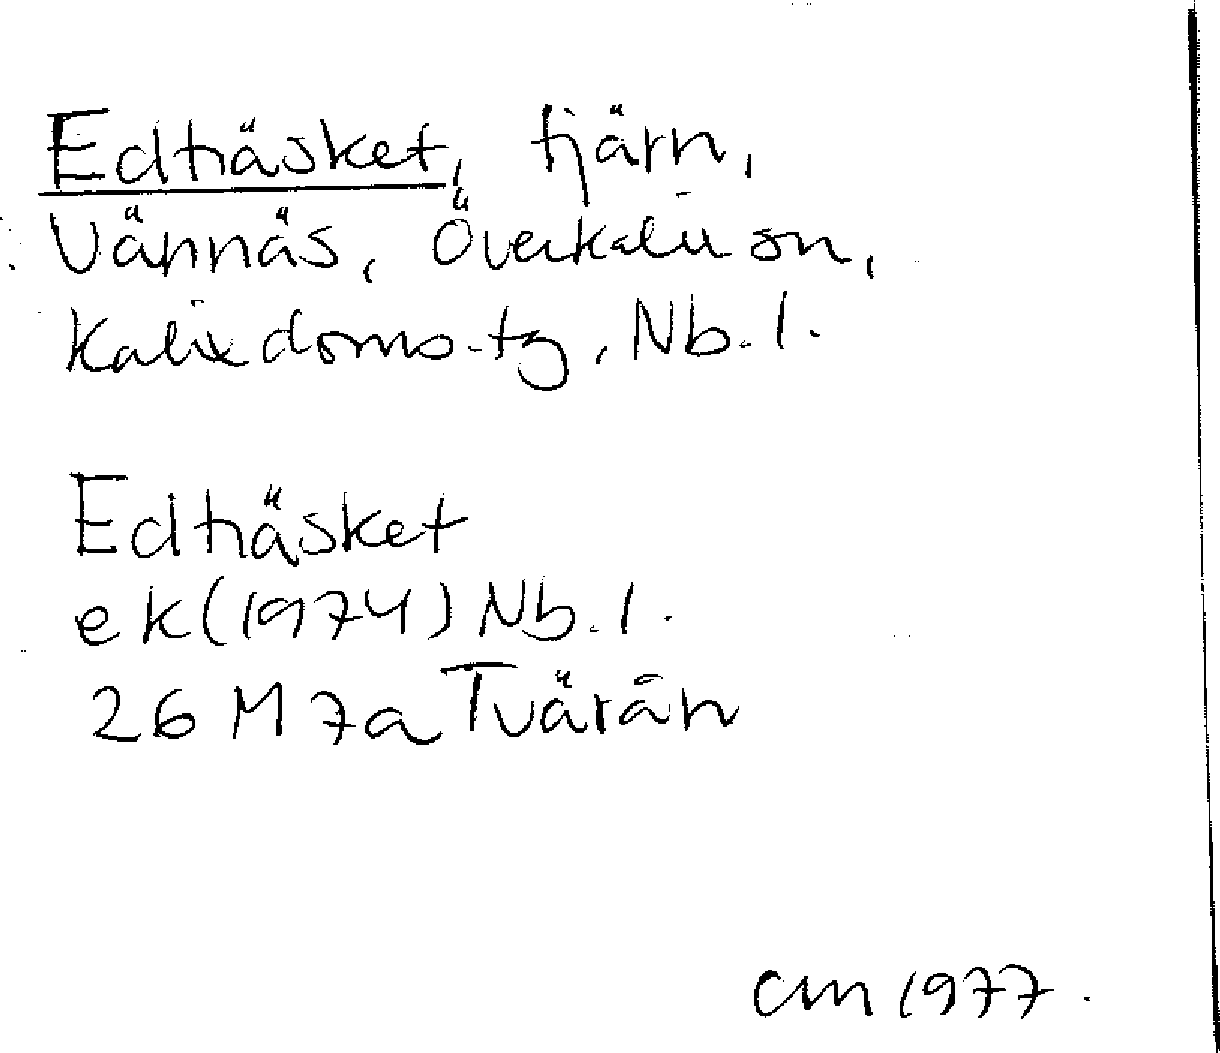 Edträsket, tjärn,
Vännäs, Överkalix sn,
Kalix doms.tg, Nb. l.
Edträsket
ek (1974) Nb. l.
26 M 7a Tvärån
CM 1977.